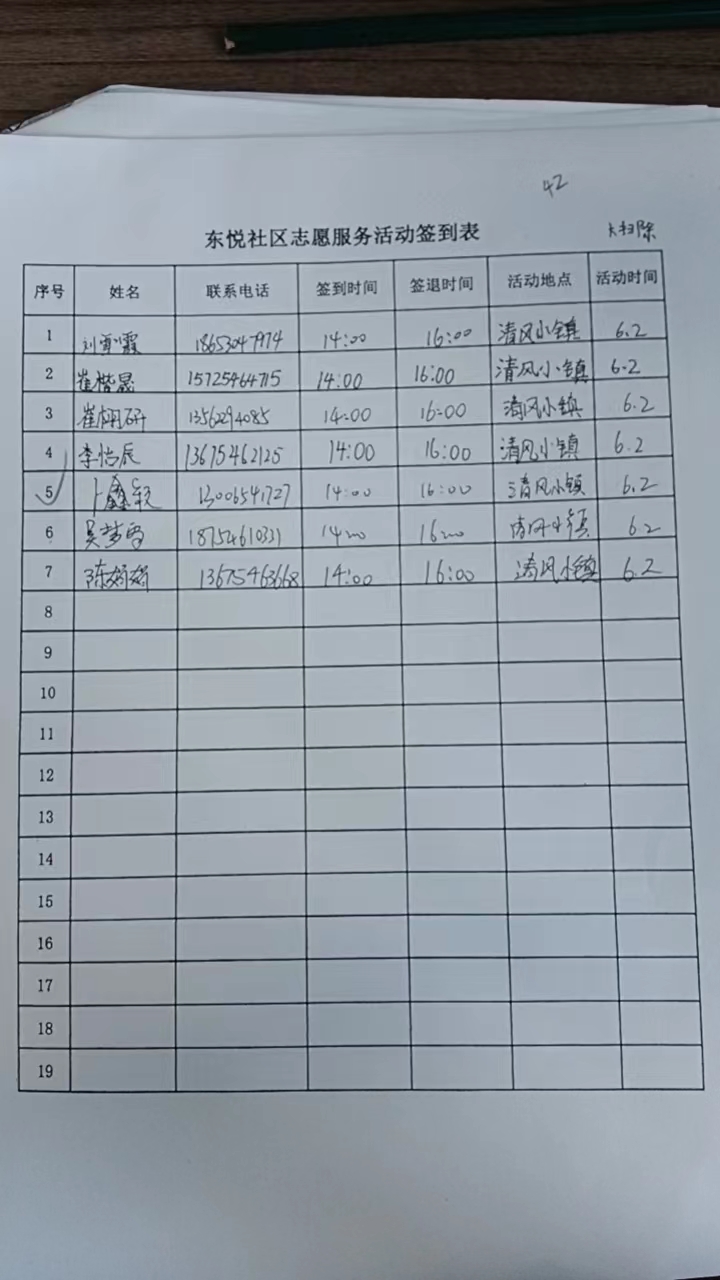 42
东悦社区志愿服务活动签到表 大扫除
序号 姓名 联系电话 签到时间 签退时间 活动地点 活动时间
1 刘 霖 18653047974 14:00 16:00 清风小镇 6.2
2 崔楷晟 15725464715 14:00 16:00 清风小镇 6.2
3 崔栩研 1356294085 14:00 16:00 清风小镇 6.2
4 李怡辰 13675462125 14:00 16:00 清风小镇 6.2
5 卜鑫颖 13006541727 14:00 16:00 清风小镇 6.2
6 吴梦雪 18754610331 1400 1600 清风小镇 6.2
7 陈娟娟 13675463668 14:00 16:00 清风小镇 6.2
8
9
10
11
12
13
14
15
16
17
18
19